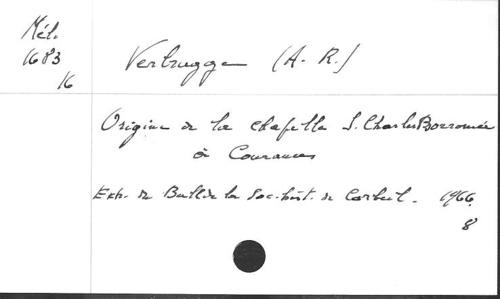 Mél.
1683
16
Verbrugge (A. R.)
Origine de la chapelle S. Charles Borromée
à Courances
Extr. de Bull. de la Soc. hist. de Corbeil. 1966.
8